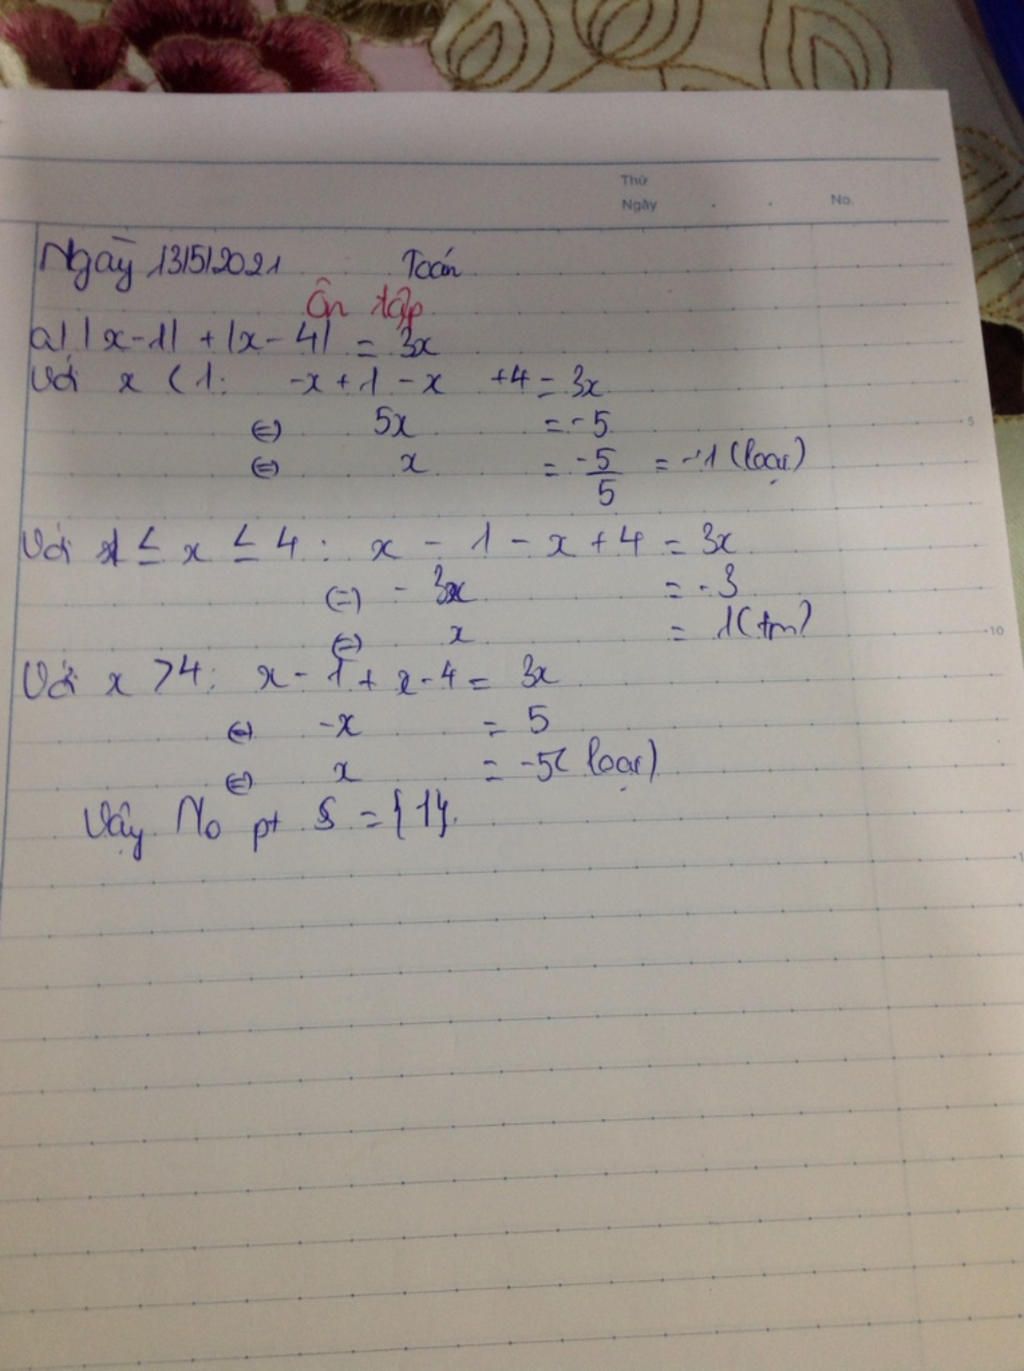 Thứ
Ngày . . No.
Ngày 13/5/2021 Toán
Ôn tập
a) |x-1| + |x-4| = 3x
Với x < 1: -x+1-x +4 = 3x
(=) 5x = -5
(=) x = -5/5 = -1 (loại)
Với 1 ≤ x ≤ 4: x - 1 - x + 4 = 3x
(=) - 3x = -3
(=) x = 1 (tm)
Với x > 4: x - 1 + x - 4 = 3x
(=) -x = 5
(=) x = -5 (loại)
Vậy No pt S = {1}.
5
10